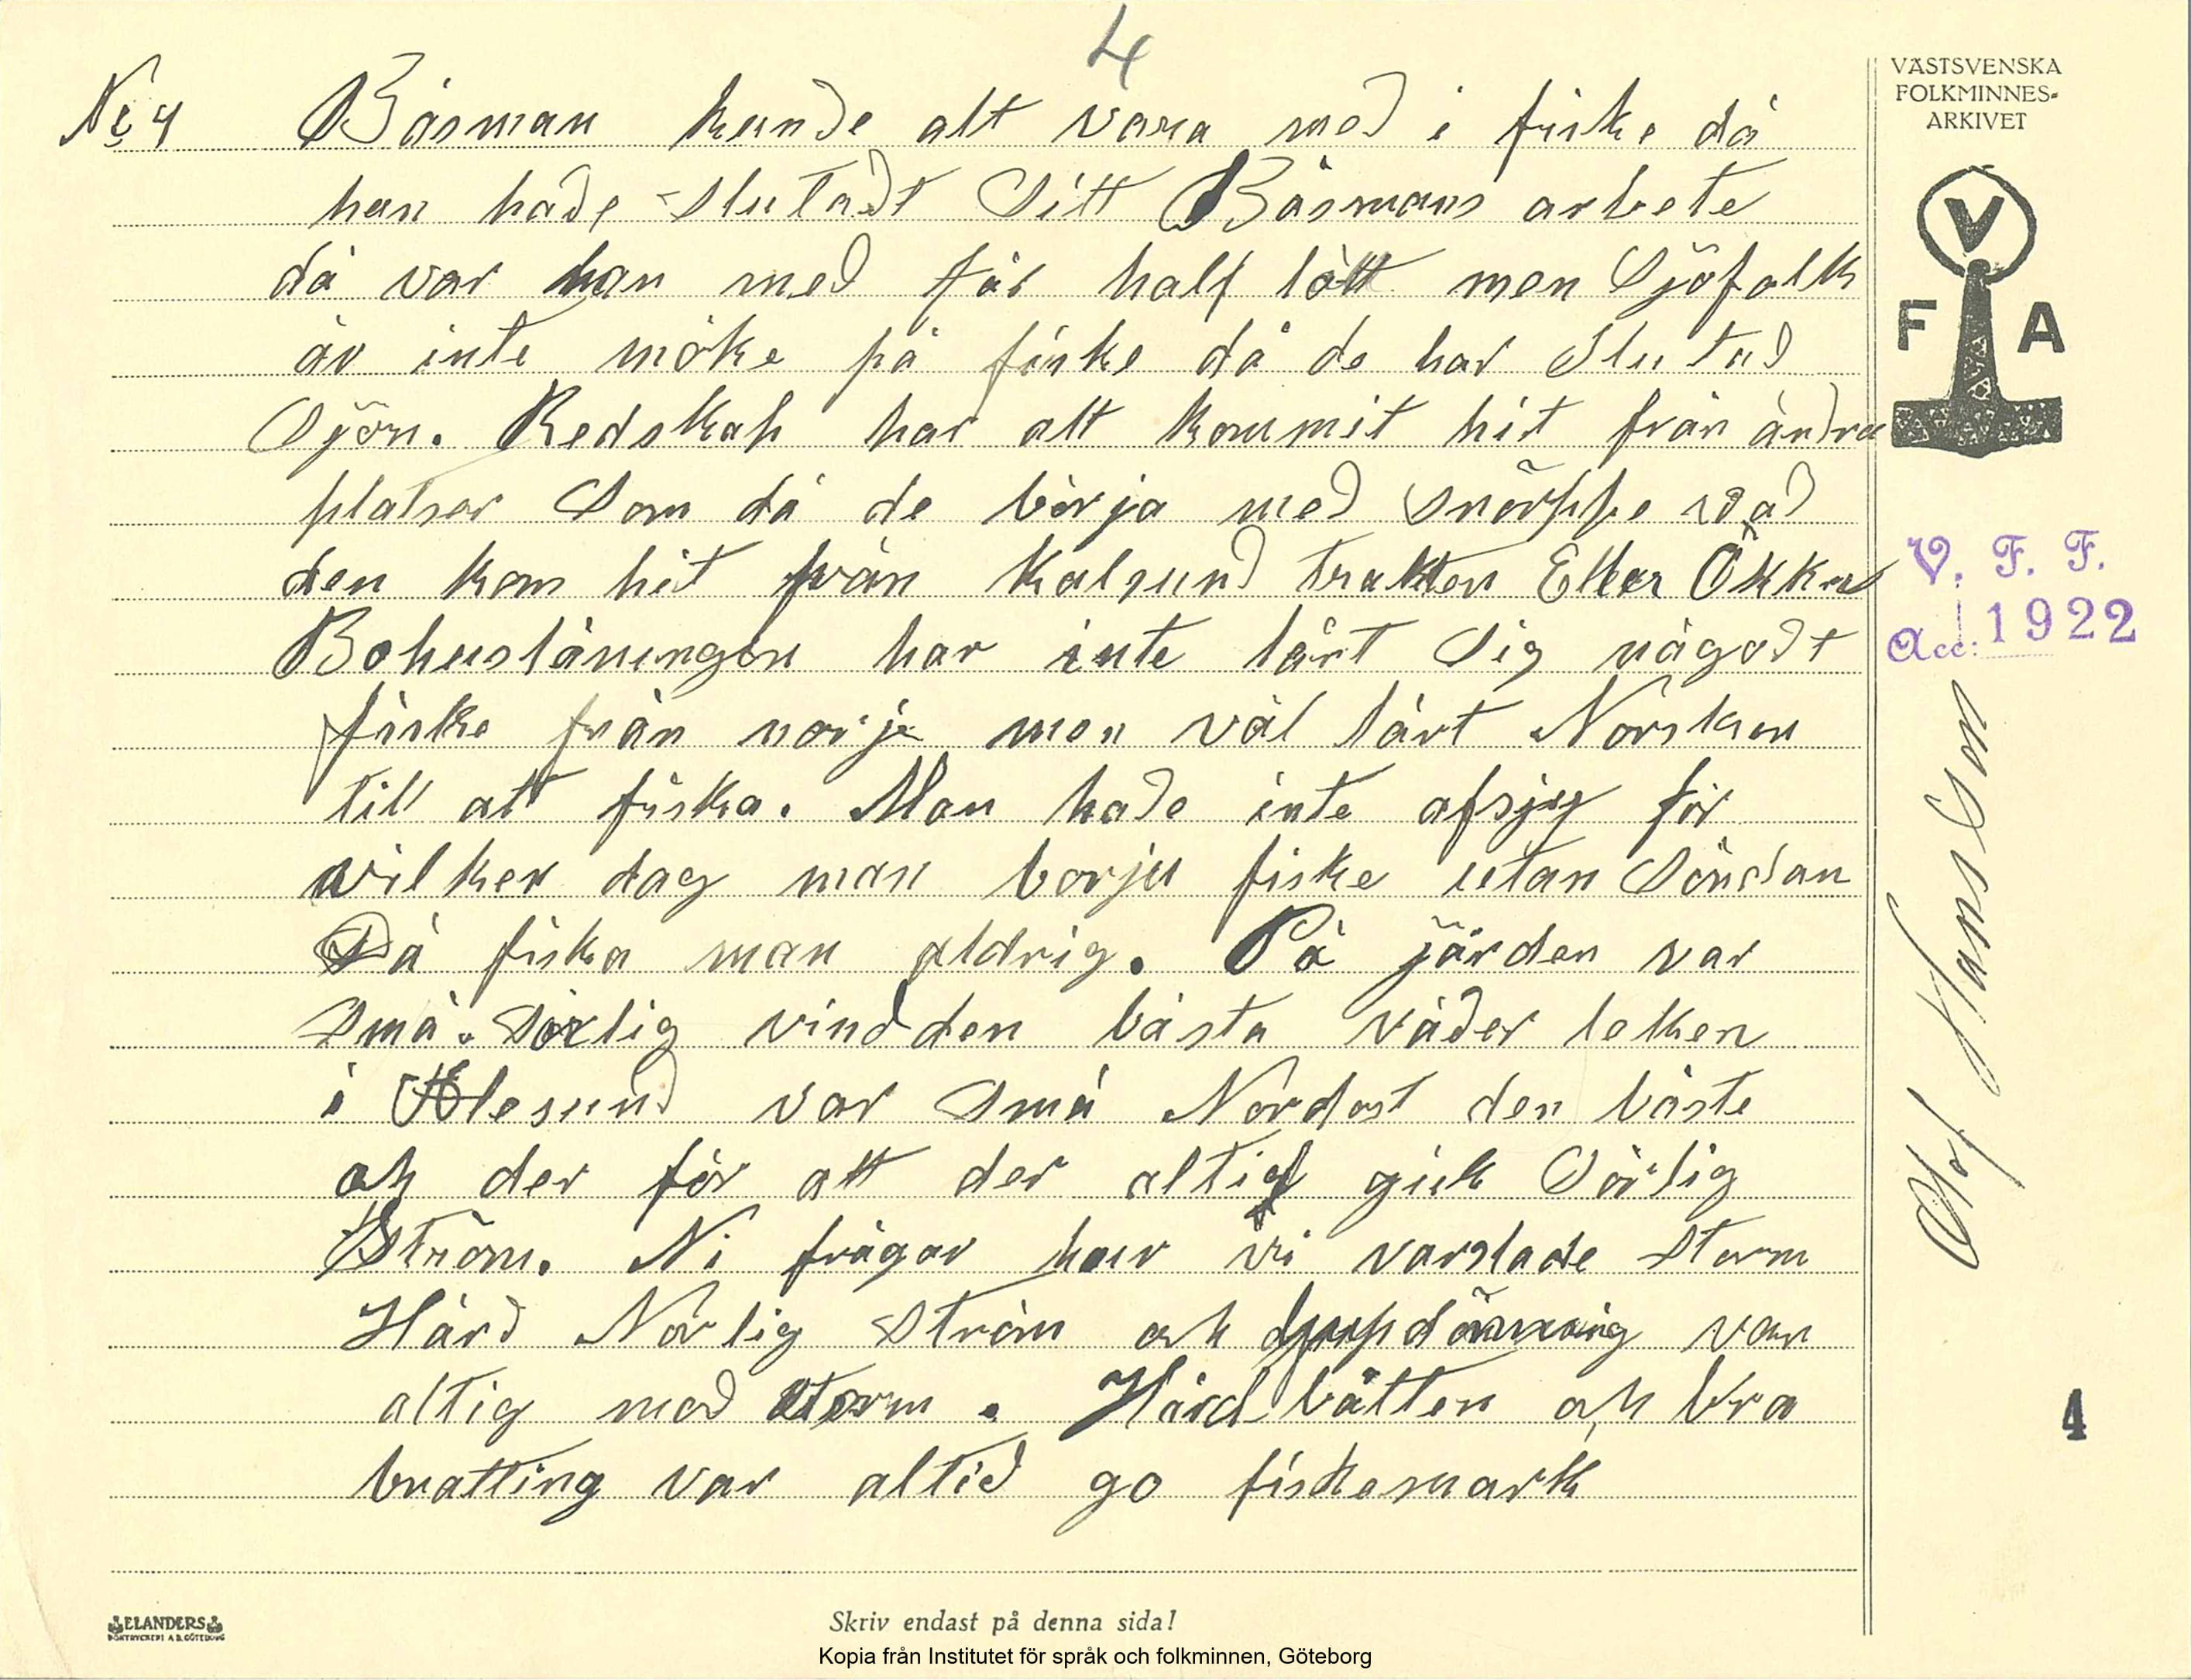 4
No 4 Båsman kunde alt vara med i fiske då
han hade slutadt Sitt Båsmans arbete
då var han med för half lått men Sjöfolk
äv inte möke på fiske då de har Slutad
Sjön. Redskap har alt kommit hit från andra
platser Som då de börja med snörppe vad
den kom hit från Kalsund trakten Eller Ökkrö
Bohusläningen har inte lärt Sig någodt
fiske från norje men väl lärt Norsken
till att fiska. Man hade inte afsjy för
vilken dag man borju fiske utan Söndan
Då fiska man aldrig. På järden var
Små. Sörlig vindden bästa väder leken
i Ålesund var Små Nordost den bäste
ok der för att der altid gick Sörlig
Ström. Ni frågar hur vi varslade storm
Hård Norlig Ström ok dypdönning var
altig med storm. Hård båtten ok bra
bratting var altid go fiskemark
VÄSTSVENSKA
FOLKMINNES-
ARKIVET
V
F A
V. F. F.
Acc: 1922
Olof Hansson
4
ELANDERS
BOKTRYCKERI A.B. GÖTEBORG
Skriv endast på denna sida!
Kopia från Institutet för språk och folkminnen, Göteborg